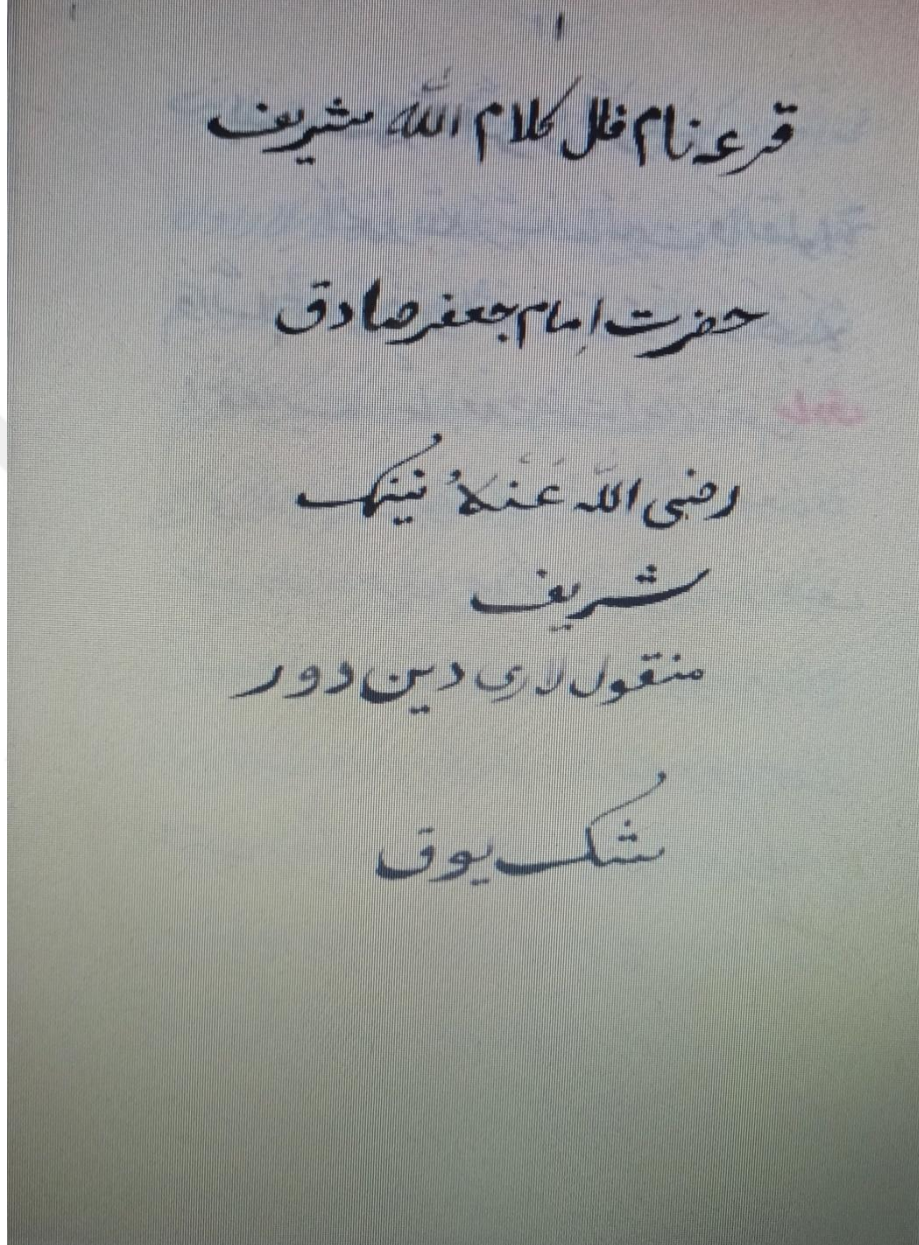 ١
قرعه نام فال كلام الله شريف
حضرت امام جعفر صادق
رضى الله عَنْهُ نينك
شريف
منقول لارى دين دور
شک يوق